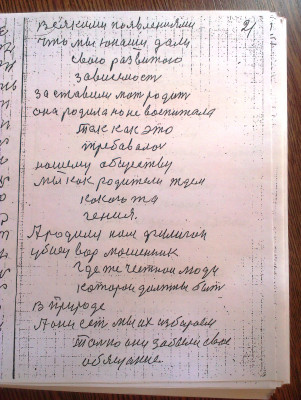 2/
Всякими появлениями
что мы юнаши дали
свого развитого
зависност
заставили мот родит
она родила но не воспитала
так как это
требавалос
нашему обществу
мы как родители ждем
какога та
гения.
А родили нам
убиец вор машенник
где же честнои люди
которои должны быт
в природе
А они ест мы их избираем
толко они забыли свое
обящание